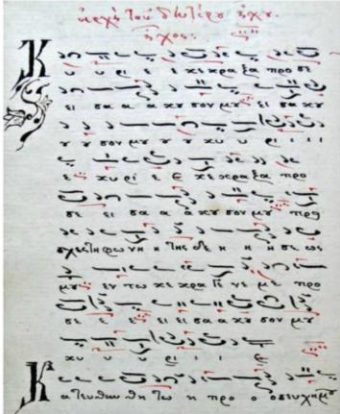 ἀρχὴ τοῦ δευτέρου ἤχου.
ἦχος
Κ υ υ ρι ε ε κε κρα ξα προ σε
ει σα α α κου σον μου ει σα κου
κυ υ ρι ι ι
ε κυ ρι ε ε κε κρα ξα προ
σε ει σα α α κου σον μου προ
σχες τη φω νη η της δε η η σε ως
μου εν τω κε κρα γε με προ
σε ε ε ει σα α κου σον μου
κυ υ υ ρι ι ε
Κ α τευ θυν θη τω η προ ο σευχη μου